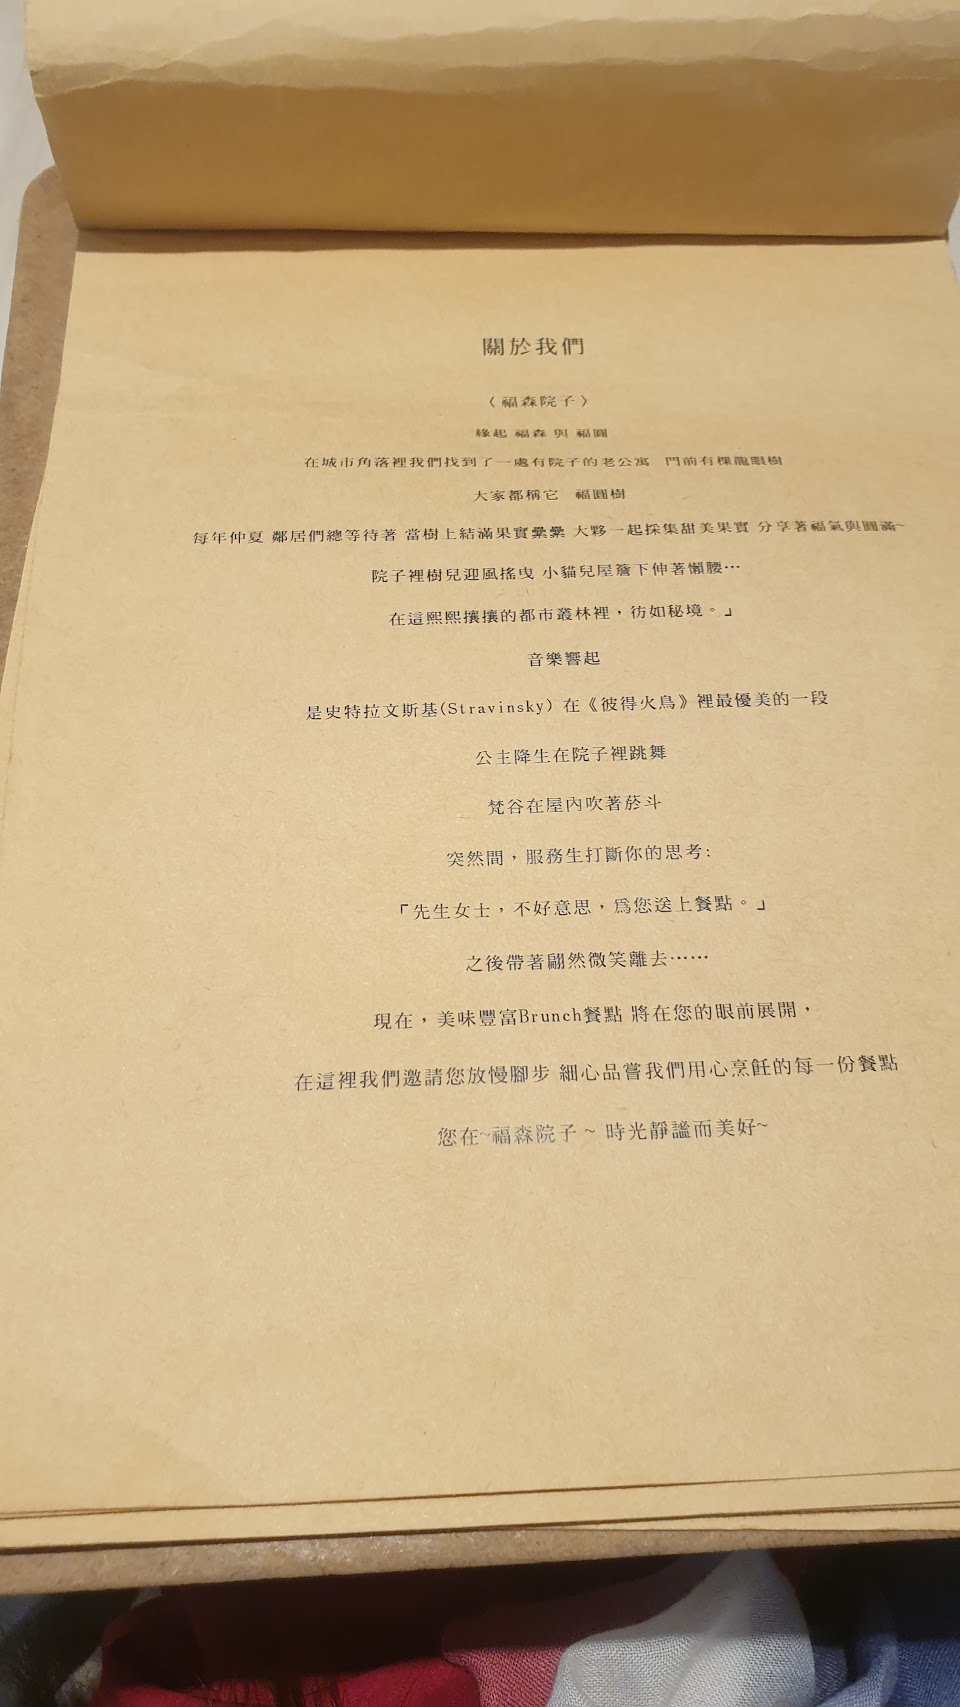 關於我們
〈福森院子〉
緣起 福森 與 福圓
在城市角落裡我們找到了一處有院子的老公寓 門前有棵龍眼樹
大家都稱它 福圓樹
每年仲夏 鄰居們總等待著 當樹上結滿果實纍纍 大夥一起採集甜美果實 分享著福氣與圓滿~
院子裡樹兒迎風搖曳 小貓兒屋簷下伸著懶腰…
在這熙熙攘攘的都市叢林裡，彷如秘境。」
音樂響起
是史特拉文斯基(Stravinsky) 在《彼得火鳥》裡最優美的一段
公主降生在院子裡跳舞
梵谷在屋內吹著菸斗
突然間，服務生打斷你的思考:
「先生女士，不好意思，為您送上餐點。」
之後帶著翩然微笑離去……
現在，美味豐富Brunch餐點 將在您的眼前展開，
在這裡我們邀請您放慢腳步 細心品嘗我們用心烹飪的每一份餐點
您在~福森院子 ~ 時光靜謐而美好~